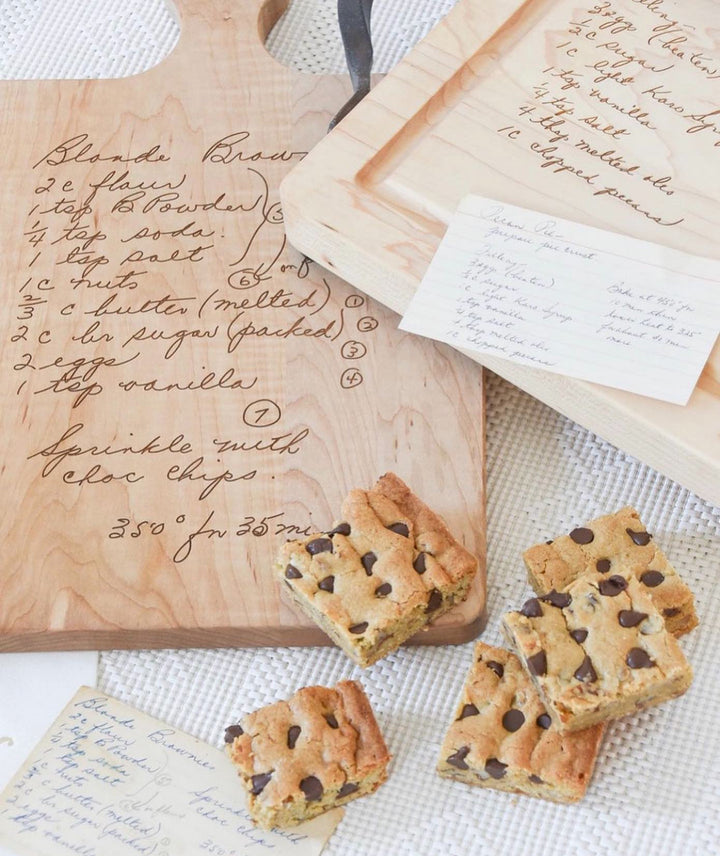 Blonde Brow
2 c flour
1 tsp B Powder
1/4 tsp soda.
1 tsp salt
1 c nuts
⑥
2/3 c butter (melted) ①
2 c br sugar (packed) ②
2 eggs ③
1 tsp vanilla ④
⑦
Sprinkle with
choc chips.
350° for 35 mi
3 eggs (beaten
2 c sugar
1 c light Karo Sy
1 tsp vanilla
1/4 tsp salt
4 tbsp melted oleo
1 c chopped pecans
Pecan Pie
prepare pie crust
Filling
3 eggs (beaten)
sugar
c light Karo Syrup
1 tsp vanilla
1/4 tsp salt
4 tbsp melted oleo
1 c chopped pecans
Bake at 450° for
10 min then
lower heat to 325°
more
Blonde Brownies
2 c flour
1 tsp B Powder
1/4 tsp soda
1 tsp salt
1 c nuts
2/3 c butter (melted)
2 c br sugar (packed)
2 eggs
1 tsp vanilla
Sprinkle with
choc chips
350°